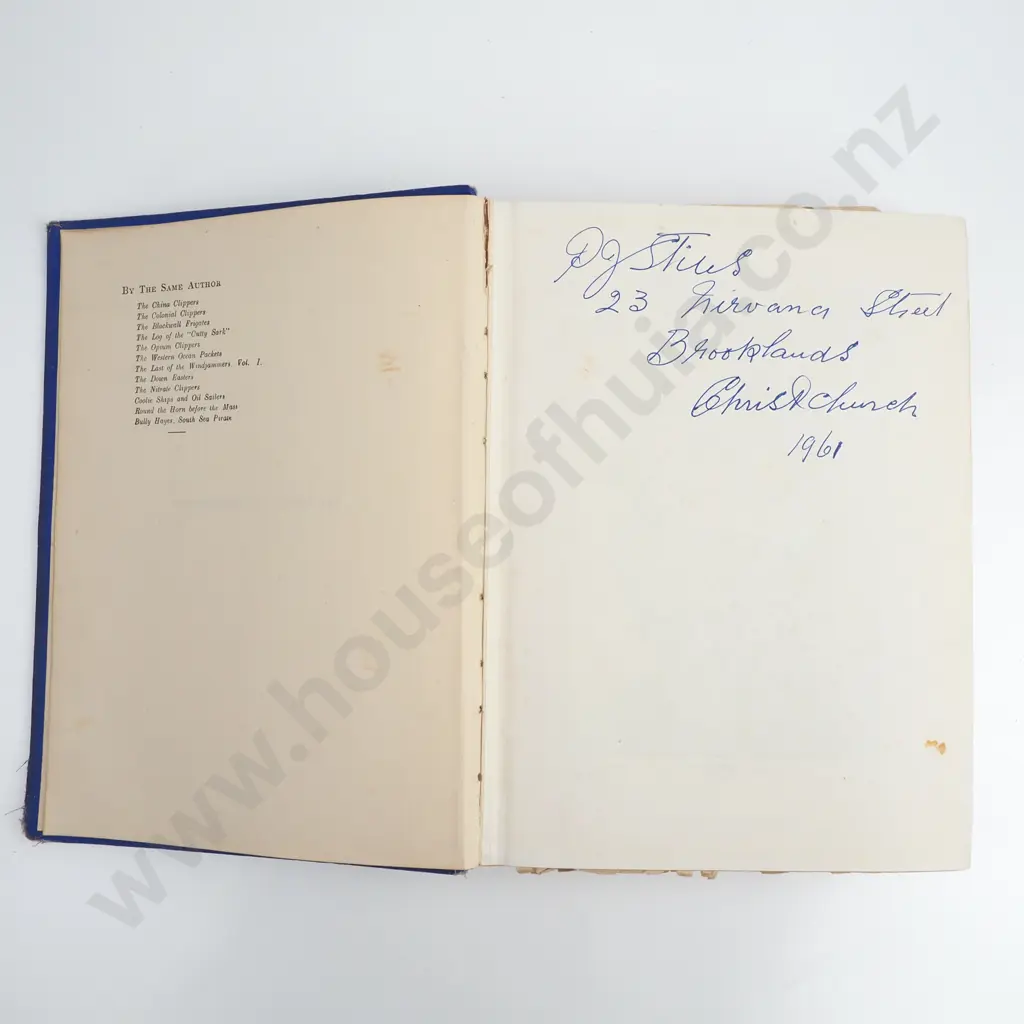 BY THE SAME AUTHOR
The China Clippers
The Colonial Clippers
The Blackwall Frigates
The Log of the "Cutty Sark"
The Opium Clippers
The Western Ocean Packets
The Last of the Windjammers Vol. I.
The Down Easters
The Nitrate Clippers
Coolie Ships and Oil Sailers
Round the Horn before the Mast
Bully Hayes, South Sea Pirate
23 Nirvana Street
Brooklands
Christchurch
1961
www.houseofhuia.co.nz